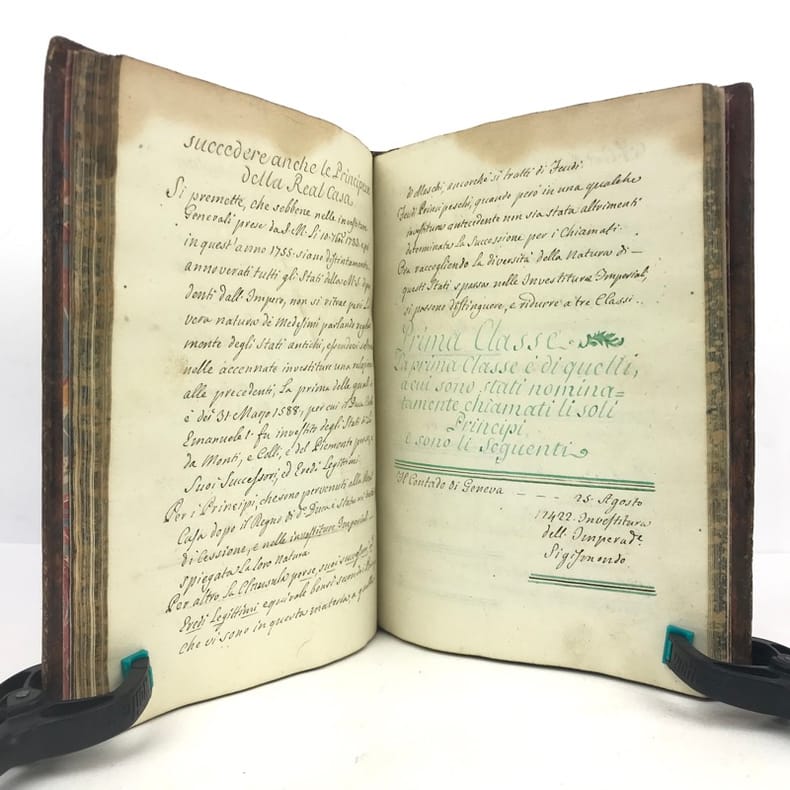 succedere anche le Principesse
della Real Casa
Si premette, che sebbene nelle investiture
Generali prese da S. M. li 10. 1733. e
in quest'anno 1755. siano distintamente
annoverati tutti gli Stati della M. S.
denti dall'Impero, non si ritrae però la
vera natura de Medesimi parlando
mente degli Stati antichi, essendosi
nelle accennate investiture una
alle precedenti, La prima delle quali
è dei 31 Marzo 1588, per cui il Duca Carlo
Emanuele 1.º fu investito degli Stati di
da Monti, e Colli, e del Piemonte
Suoi Successori, ed Eredi Legittimi.
Per i Principi, che sono pervenuti alla Real
Casa dopo il Regno di d.º Duca
di Cessione, e nelle investiture Imperiali
spiegata la loro natura
Per altro la Clausula
Eredi Legittimi equivale bensì
che vi sono in questa materia, a quella
d Maschi, ancorchè si tratti di Feudi
Feudi Principeschi, quando però in una qualche
investitura antecedente non sia stata altrimenti
determinata la Successione per i Chiamati.
Ora raccogliendo la diversità della Natura di
questi Stati sparsa nelle Investiture Imperiali,
si possono distinguere, e ridurre a tre Classi.
Prima Classe
La prima Classe è di quelli,
a cui sono stati nomina=
tamente chiamati li soli
Principi,
e sono li Seguenti
Il Contado di Geneva - - - 25. Agosto
17422. Investitura
dell'Imperad.e
Sigismondo